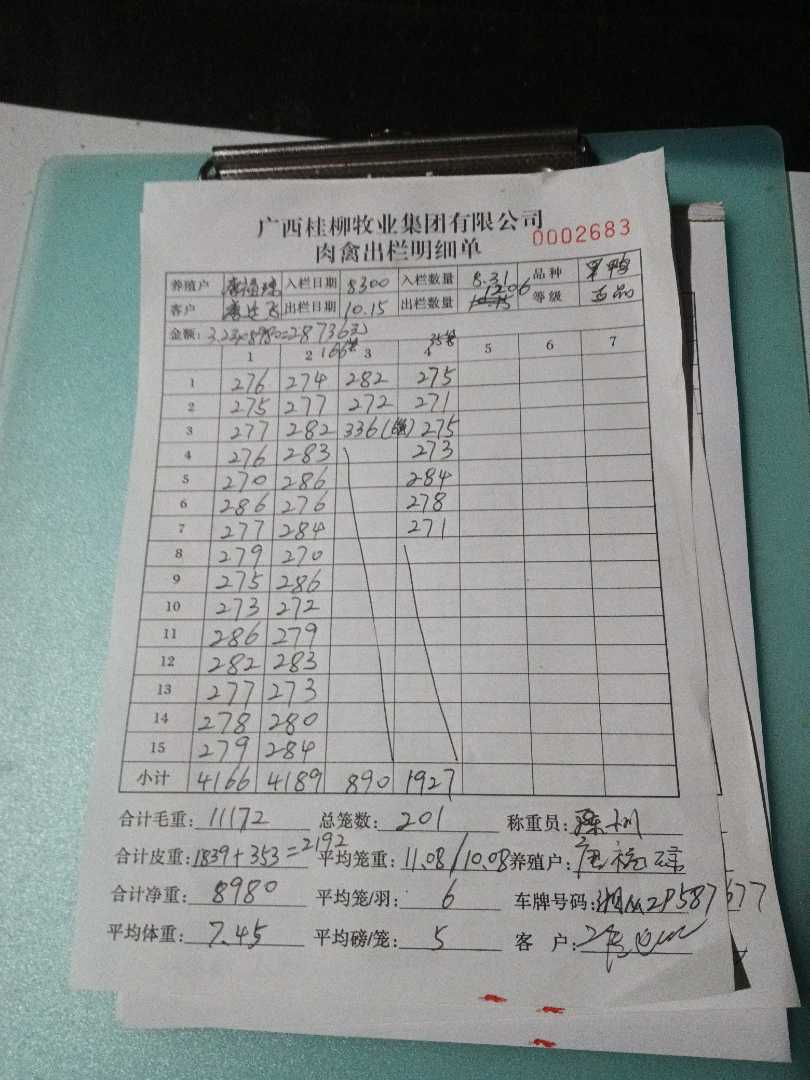 广西桂柳牧业集团有限公司
肉禽出栏明细单 0002683
养殖户 唐福琼 入栏日期 8300 入栏数量 8.31 品种 黑鸭
客户 出栏日期 10.15 出栏数量 1206 等级 正品
金额: 3.23×8980=28736元
1 2 3 4 5 6 7
166 35
1 276 274 282 275
2 275 277 272 271
3 277 282 336 275
4 276 283 273
5 270 286 284
6 286 276 278
7 277 284 271
8 279 270
9 275 286
10 273 272
11 286 279
12 282 283
13 277 273
14 278 280
15 279 284
小计 4166 4189 890 1927
合计毛重: 11172 总笼数: 201 称重员:
合计皮重: 1839+353=2192 平均笼重: 11.08/10.08 养殖户: 唐福琼
合计净重: 8980 平均笼/羽: 6 车牌号码:
平均体重: 7.45 平均磅/笼: 5 客 户: